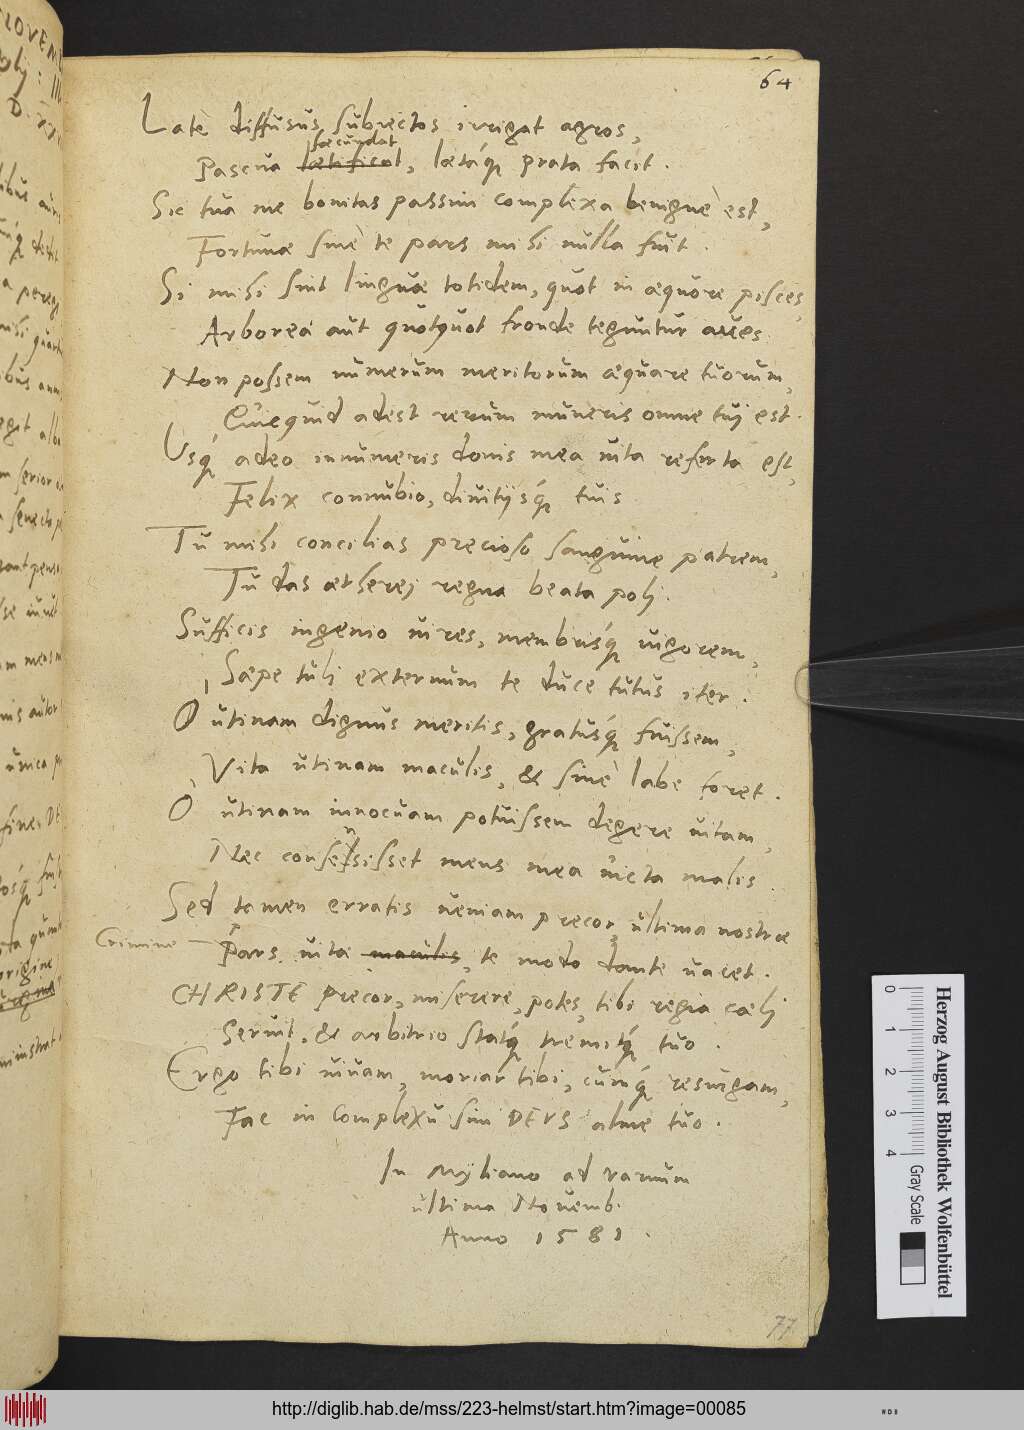 64
Late diffusus subrectos irrigat agros,
fœcundat
Pascua lætificat, lætáq́ prata facit.
Sic tua me bonitas passim complexa benignè est,
Fortunæ sine te pars mihi nulla fuit.
Si mihi sint linguæ totidem, quot in æquore pisces,
Arborea aut quotquot fronde teguntur aues.
Non possem numerum meritorum æquare tuorum,
Quicquid adest rerum muneris omne tuj est.
Vsq́ adeo innumeris donis mea uita referta est,
Felix connubio, diuitijsq́ tuis
Tu mihi concilias precioso sanguine patrem,
Tu das ætherej regna beata polj.
Sufficis ingenio uires, membrisq́ uigorem,
Sæpe tulj externum te duce tutus iter.
O utinam dignus meritis, gratusq́ fuissem,
Vita utinam maculis, & sine labe foret.
O utinam innocuam potuissem degere uitam,
Nec consensisset mens mea uicta malis.
Sed tamen erratis ueniam precor, ultima nostræ
Crimine
Pars uitæ maculis, te modo dante uacet.
CHRISTE precor, miserere, potes, tibi regia cælj
Seruit, & arbitrio statq́ tremitq́ tuo.
Ergo tibi uiuam, moriar tibi, cumq́ resurgam,
Fac in complexu sim DEVS alme tuo.
In Myliano ad ramum
ultima Nouemb.
Anno 1581.
77
Herzog August Bibliothek Wolfenbüttel
0 1 2 3 4 Gray Scale
http://diglib.hab.de/mss/223-helmst/start.htm?image=00085